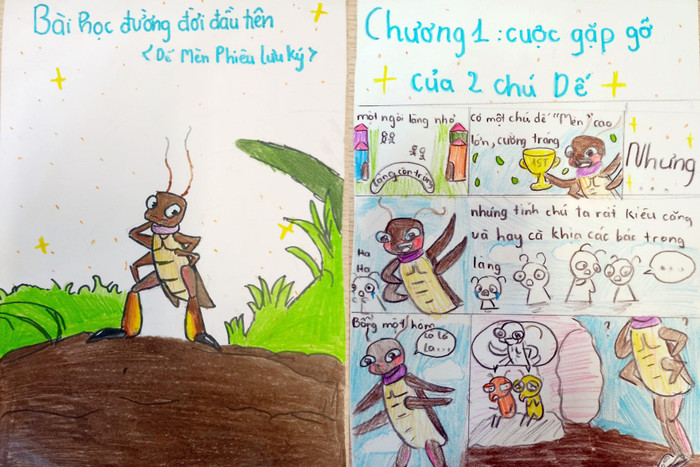 Bài học đường đời đầu tiên
< Dế Mèn Phiêu lưu ký >
Chương 1 : cuộc gặp gỡ
của 2 chú Dế
một ngôi làng nhỏ
làng côn trùng
có một chú dế "Mèn" cao
lớn, cường tráng
1ST
Nhưng
.....
những tính chú ta rất kiêu căng
và hay cà khia các bác trong
làng
Ha
Ha
....
Bỗng một hôm
la lá
la...
?
?